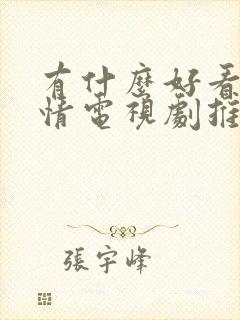 有什麼好看
情電視劇推
張宇峰